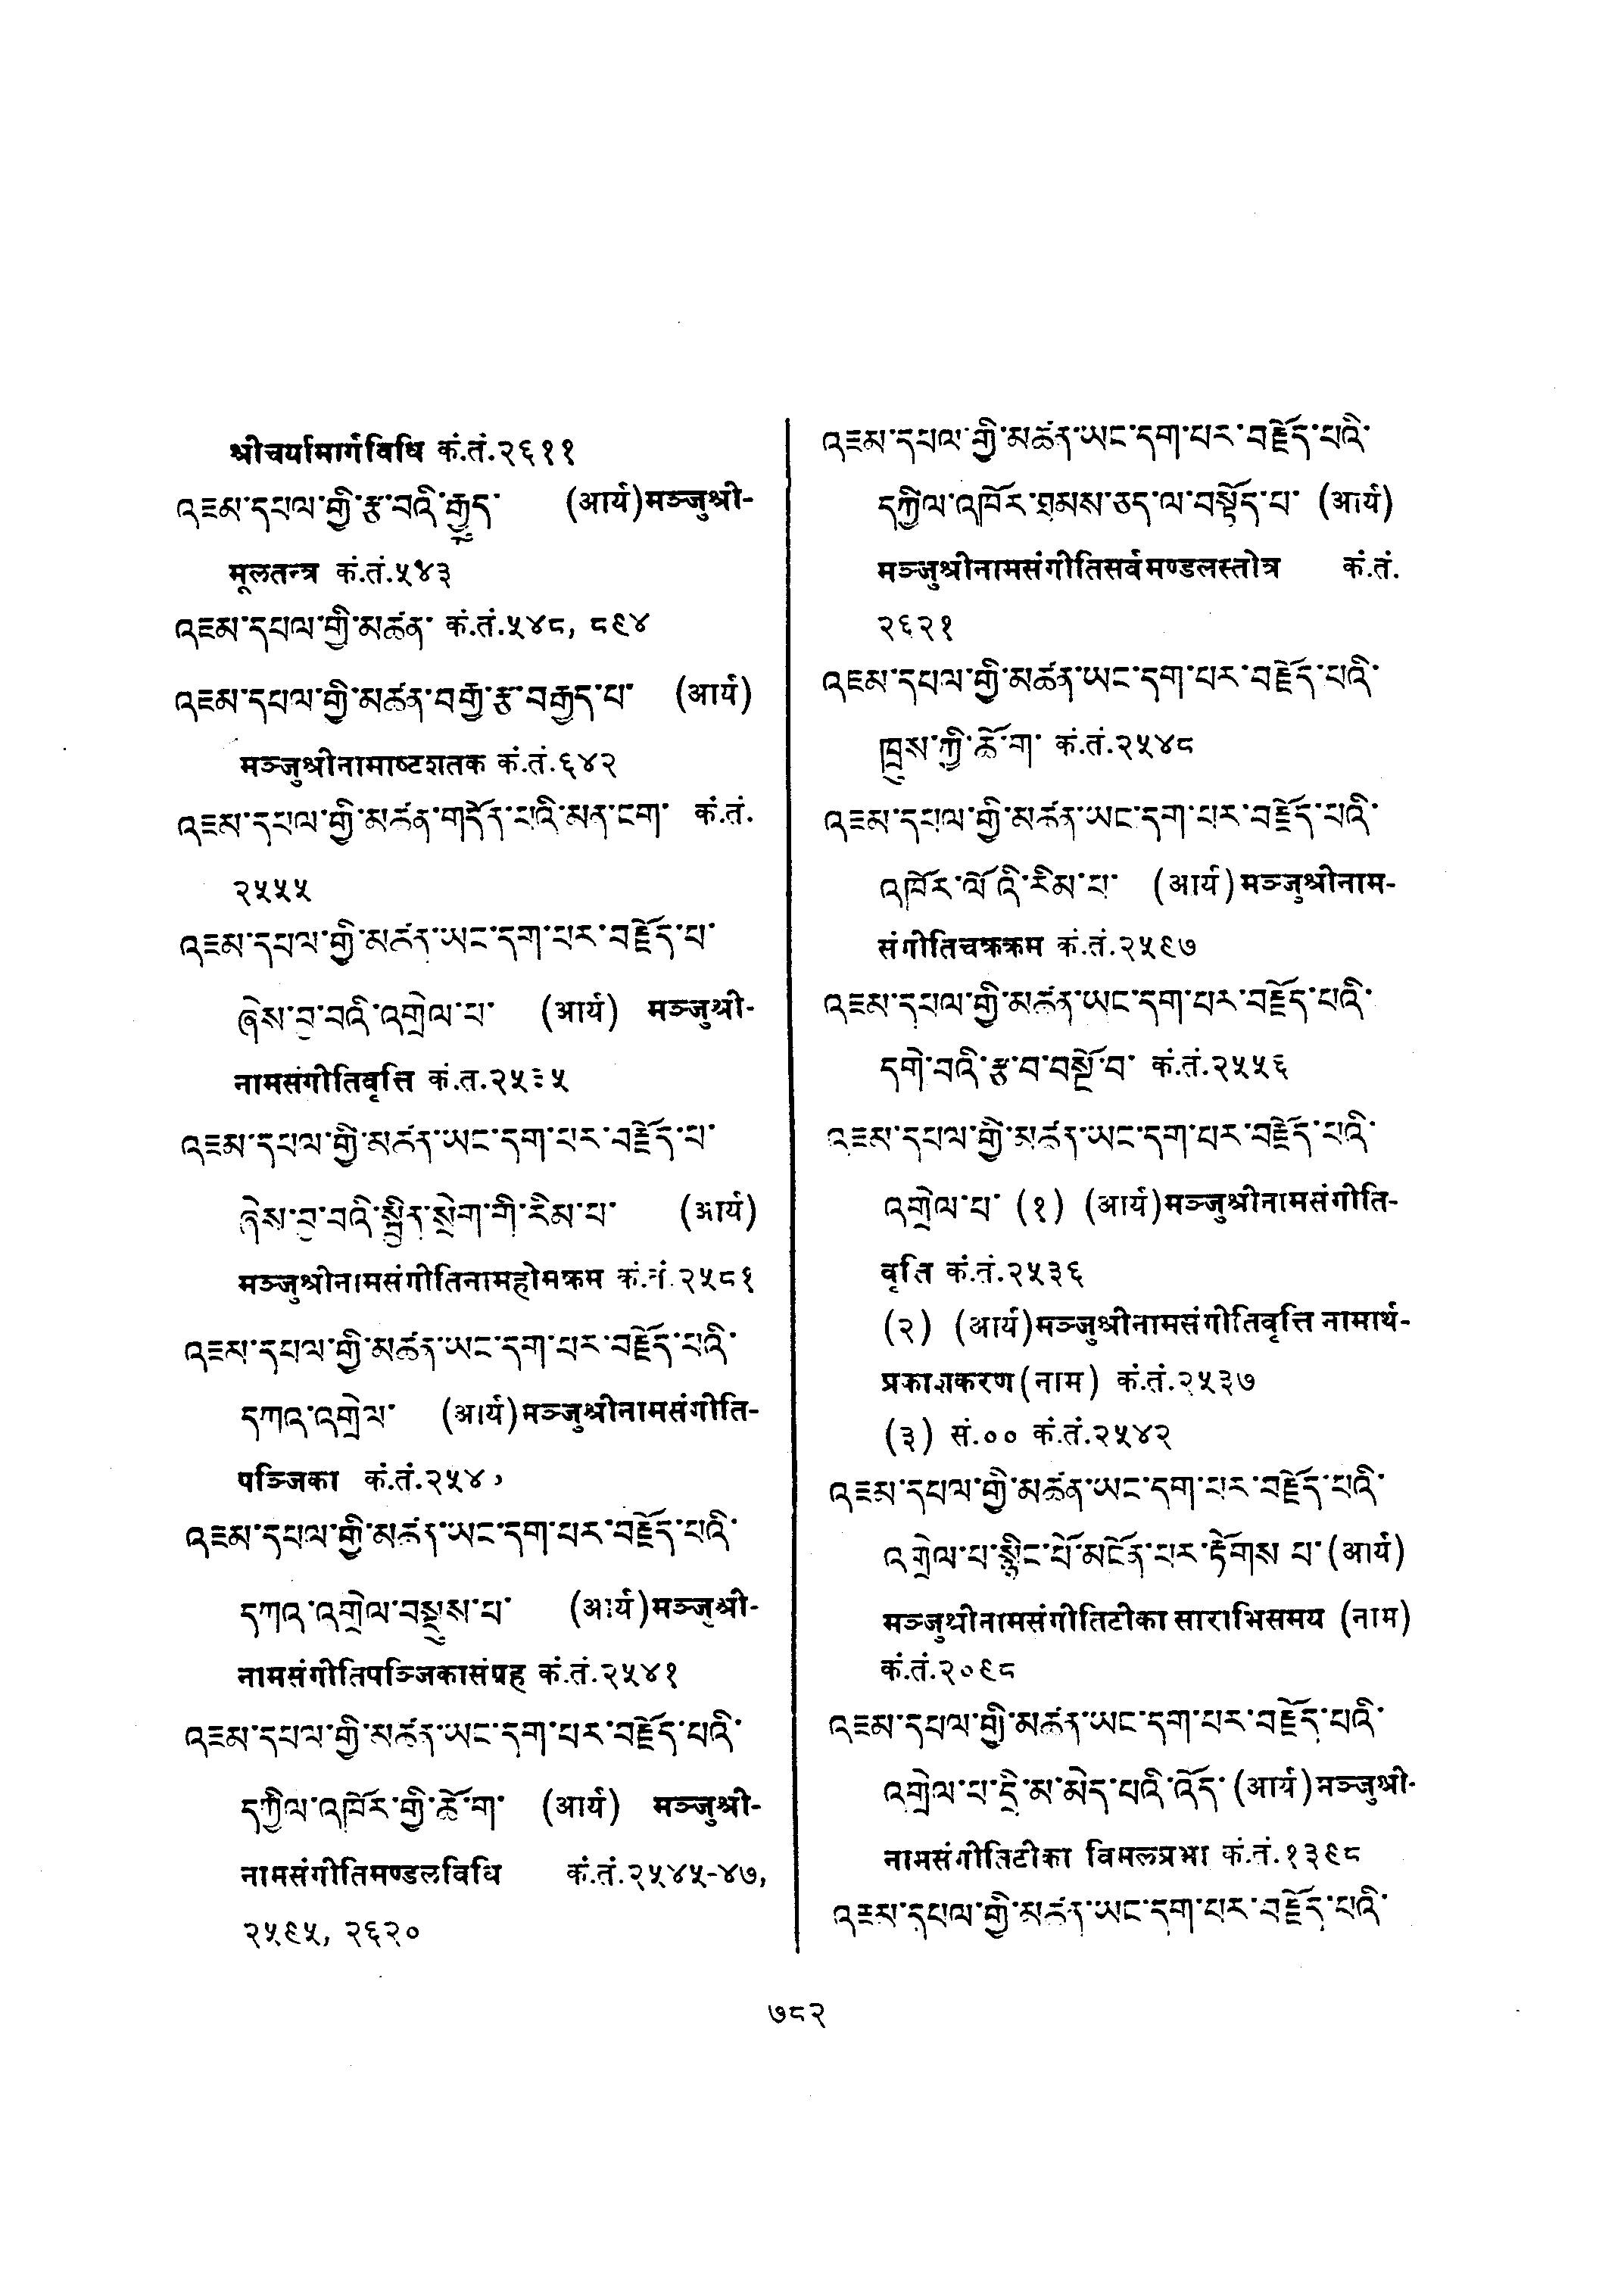 श्रीचर्यामार्गविधि कं.तं.२६११
འཇམ་དཔལ་གྱི་རྩ་བའི་རྒྱུད་ (आर्य)मञ्जुश्री-
मूलतन्त्र कं.तं.५४३
འཇམ་དཔལ་གྱི་མཚན་ कं.तं.५४८, ८९४
འཇམ་དཔལ་གྱི་མཚན་བརྒྱ་རྩ་བརྒྱད་པ་ (आर्य)
मञ्जुश्रीनामाष्टशतक कं.तं.६४२
འཇམ་དཔལ་གྱི་མཚན་གདོན་པའི་མན་ངག་ कं.तं.
२५५५
འཇམ་དཔལ་གྱི་མཚན་ཡང་དག་པར་བརྗོད་པ་
ཞེས་བྱ་བའི་འགྲེལ་པ་ (आर्य) मञ्जुश्री-
नामसंगीतिवृत्ति कं.त.
འཇམ་དཔལ་གྱི་མཚན་ཡང་དག་པར་བརྗོད་པ་
ཞེས་བྱ་བའི་སྦྱིན་སྲེག་གི་རིམ་པ་ (आर्य)
मञ्जुश्रीनामसंगीतिनामहोमक्रम कं.तं.२५८१
འཇམ་དཔལ་གྱི་མཚན་ཡང་དག་པར་བརྗོད་པའི་
དཀའ་འགྲེལ་ (आर्य)मञ्जुश्रीनामसंगीति-
पञ्जिका कं.तं.
འཇམ་དཔལ་གྱི་མཚན་ཡང་དག་པར་བརྗོད་པའི་
དཀའ་འགྲེལ་བསྡུས་པ་ (आर्य)मञ्जुश्री-
नामसंगीतिपञ्जिकासंग्रह कं.तं.२५४१
འཇམ་དཔལ་གྱི་མཚན་ཡང་དག་པར་བརྗོད་པའི་
དཀྱིལ་འཁོར་གྱི་ཆོ་ག་ (आर्य) मञ्जुश्री-
नामसंगीतिमण्डलविधि कं.तं.२५४५-४७,
२५९५, २६२०
འཇམ་དཔལ་གྱི་མཚན་ཡང་དག་པར་བརྗོད་པའི་
དཀྱིལ་འཁོར་ཐམས་ཅད་ལ་བསྟོད་པ་ (आर्य)
मञ्जुश्रीनामसंगीतिसर्वमण्डलस्तोत्र कं.तं.
२६२१
འཇམ་དཔལ་གྱི་མཚན་ཡང་དག་པར་བརྗོད་པའི་
ཁྲུས་ཀྱི་ཆོ་ག་ कं.तं.२५४८
འཇམ་དཔལ་གྱི་མཚན་ཡང་དག་པར་བརྗོད་པའི་
འཁོར་ལོའི་རིམ་པ་ (आर्य)मञ्जुश्रीनाम-
संगीतिचक्रक्रम कं.तं.२५९७
འཇམ་དཔལ་གྱི་མཚན་ཡང་དག་པར་བརྗོད་པའི་
དགེ་བའི་རྩ་བ་བསྔོ་བ་ कं.तं.२५५६
འཇམ་དཔལ་གྱི་མཚན་ཡང་དག་པར་བརྗོད་པའི་
འགྲེལ་པ་ (१) (आर्य)मञ्जुश्रीनामसंगीति-
वृति कं.तं.२५३६
(२) (आर्य)मञ्जुश्रीनामसंगीतिवृत्ति नामार्थ-
प्रकाशकरण(नाम) कं.तं.२५३७
(३) सं.०० कं.तं.२५४२
འཇམ་དཔལ་གྱི་མཚན་ཡང་དག་པར་བརྗོད་པའི་
འགྲེལ་པ་སྙིང་པོ་མངོན་པར་རྟོགས པ་(आर्य)
मञ्जुश्रीनामसंगीतिटीका साराभिसमय (नाम)
कं.तं.२०९८
འཇམ་དཔལ་གྱི་མཚན་ཡང་དག་པར་བརྗོད་པའི་
འགྲེལ་པ་དྲི་མ་མེད་པའི་འོད་(आर्य)मञ्जुश्री-
नामसंगीतिटीका विमलप्रभा कं.तं.१३९८
འཇམ་དཔལ་གྱི་མཚན་ཡང་དག་པར་བརྗོད་པའི་
७८२